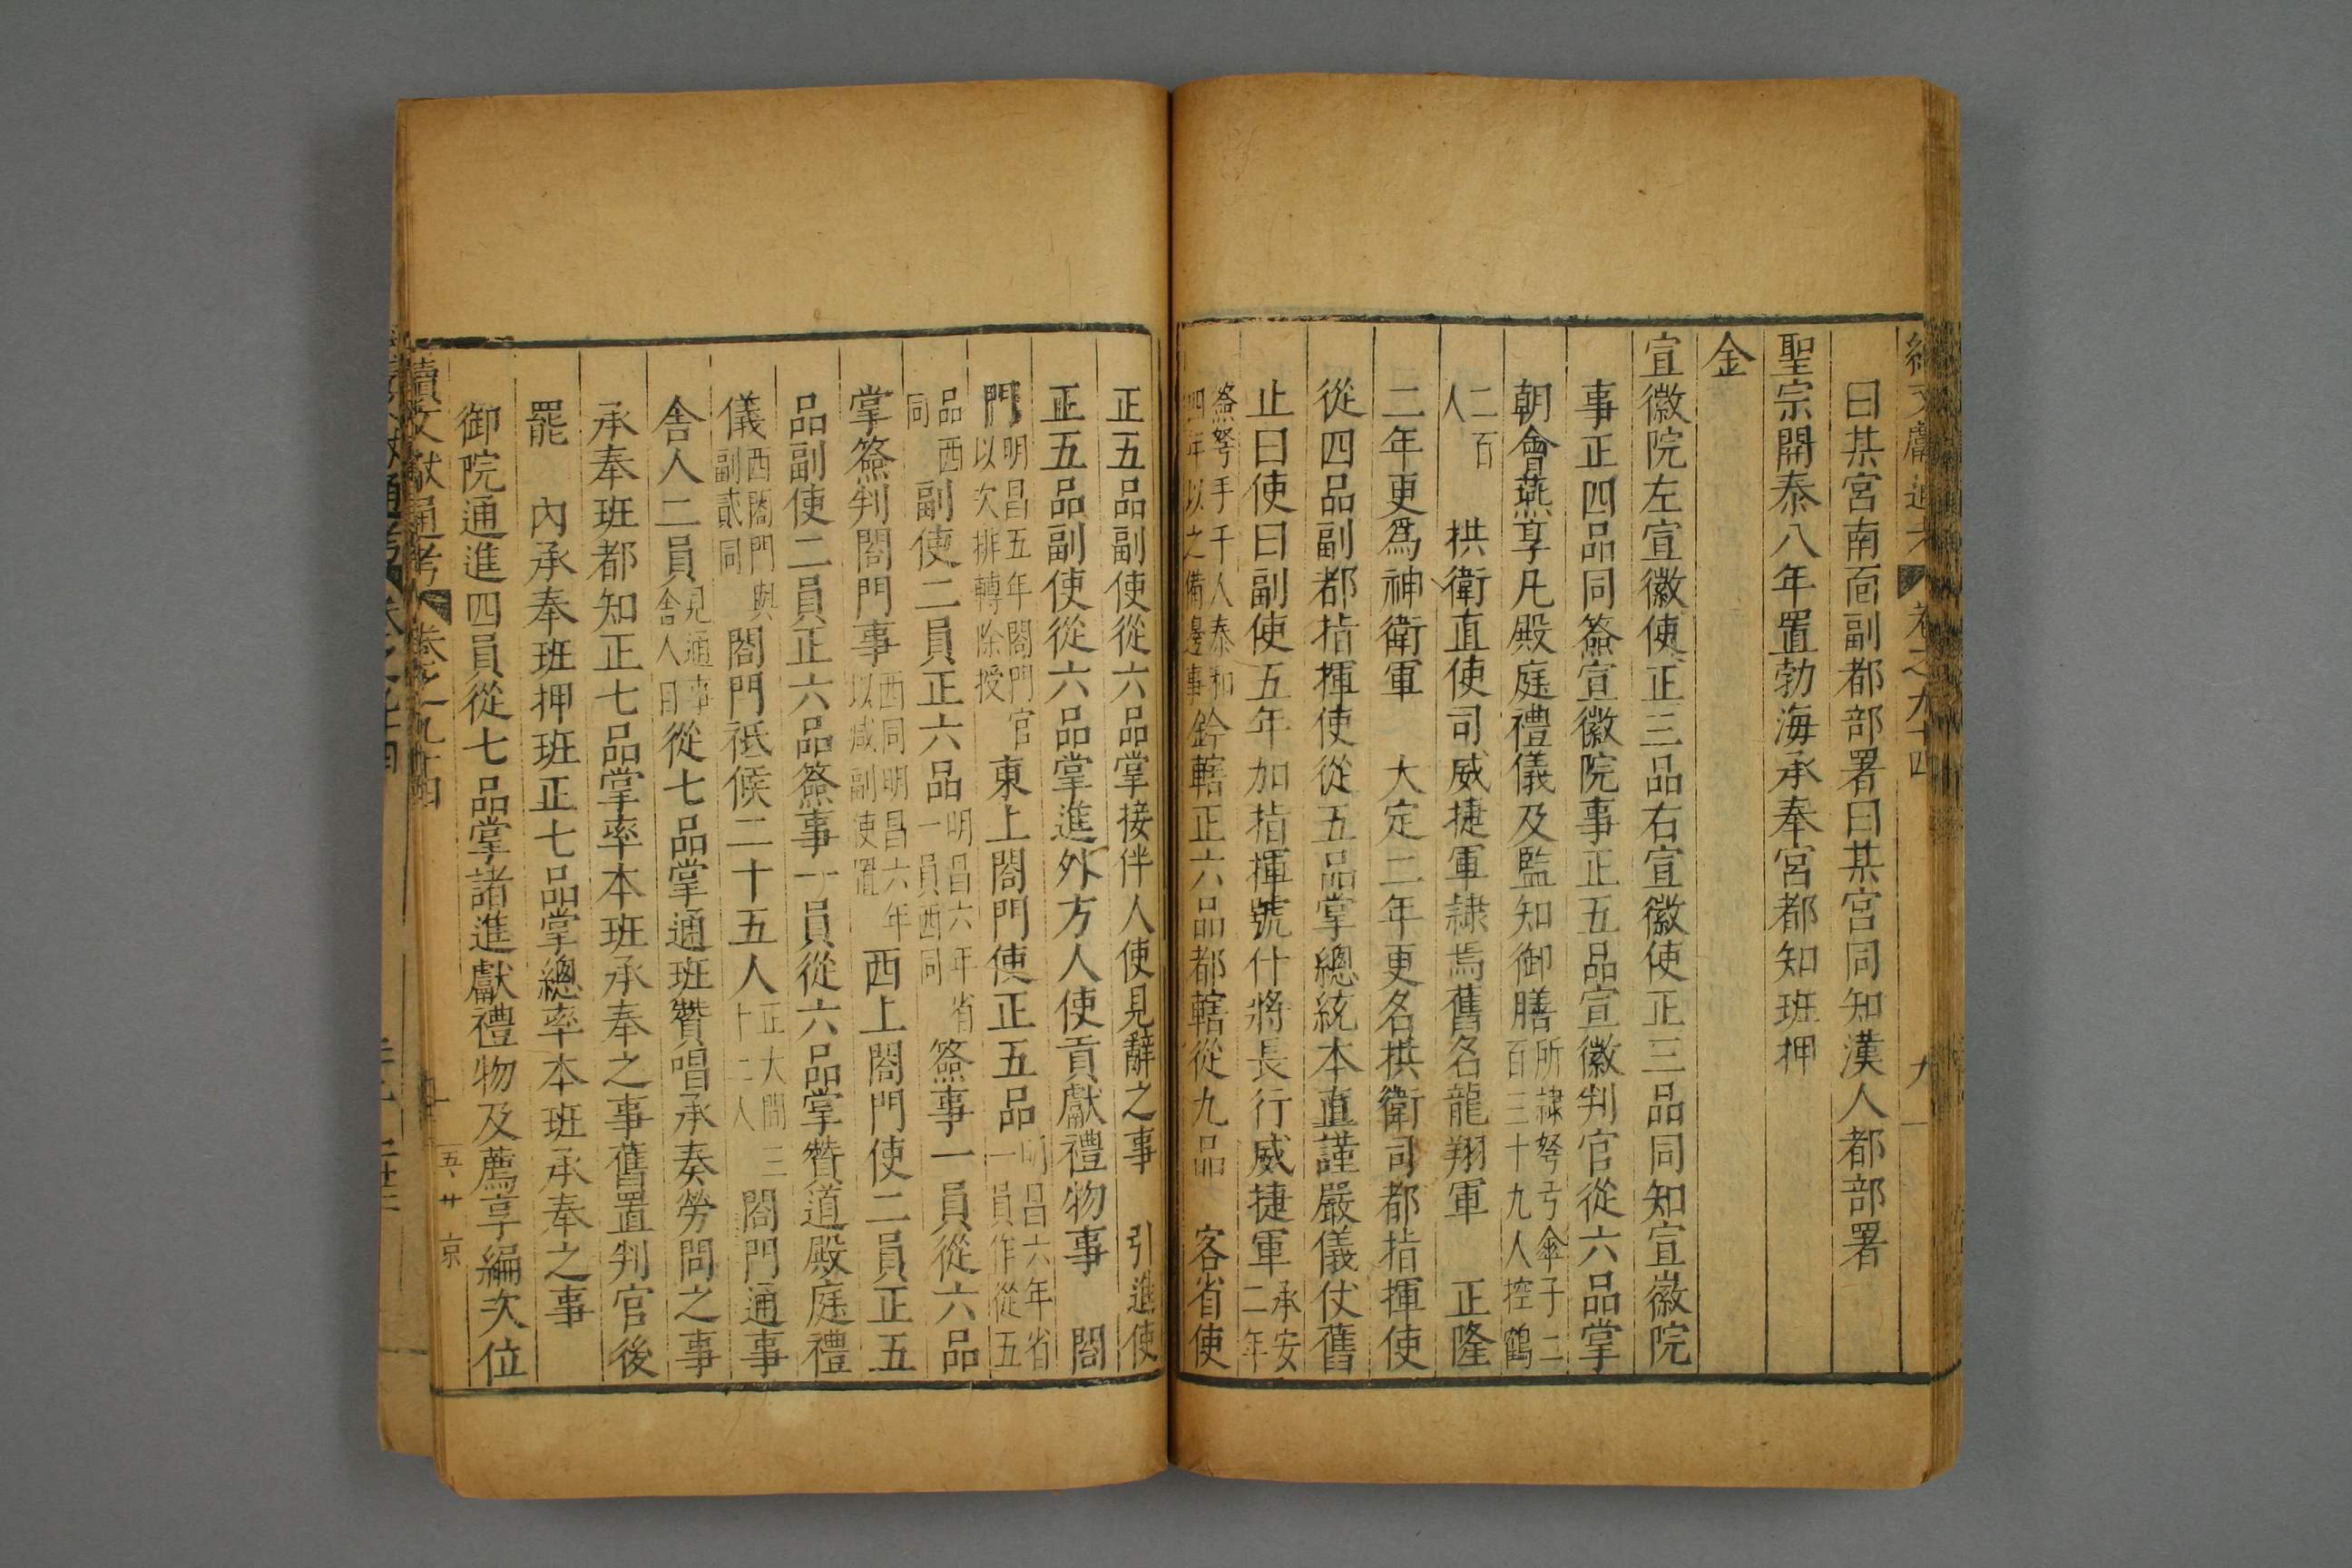 續文獻通考 卷之九十四 九
曰某宮南面副都部署曰某宮同知漢人都部署
聖宗開泰八年置勃海承奉宮都知班押
金
宣徽院左宣徽使正三品右宣徽使正三品同知宣徽院
事正四品同簽宣徽院事正五品宣徽判官從六品掌
朝會燕享凡殿庭禮儀及監知御膳所隷弩弓傘子二百三十九人控鶴
二百人 拱衛直使司威捷軍隷焉舊名龍翔軍 正隆
二年更爲神衛軍 大定二年更名拱衛司都指揮使
從四品副都指揮使從五品掌總統本直謹嚴儀仗舊
止曰使曰副使五年加指揮號什將長行威捷軍承安二年
簽弩手千人泰和四年以之備邊事鈐轄正六品都轄從九品 客省使
正五品副使從六品掌接伴人使見辭之事 引進使
正五品副使從六品掌進外方人使貢獻禮物事 閤
門明昌五年閤門官以次排轉除授 東上閤門使正五品明昌六年省一員作從五
品西同 副使二員正六品明昌六年省一員西同 簽事一員從六品
掌簽判閤門事西同明昌六年以減副使置 西上閤門使二員正五
品副使二員正六品簽事一員從六品掌贊道殿庭禮
儀西閤門與副貳同 閤門祗候二十五人正大間三十二人 閤門通事
舍人二員見通事舍人目從七品掌通班贊唱承奏勞問之事
承奉班都知正七品掌率本班承奉之事舊置判官後
罷 內承奉班押班正七品掌總率本班承奉之事
御院通進四員從七品掌諸進獻禮物及薦享編次位
續文獻通考 卷之九十四 十 五廿 京